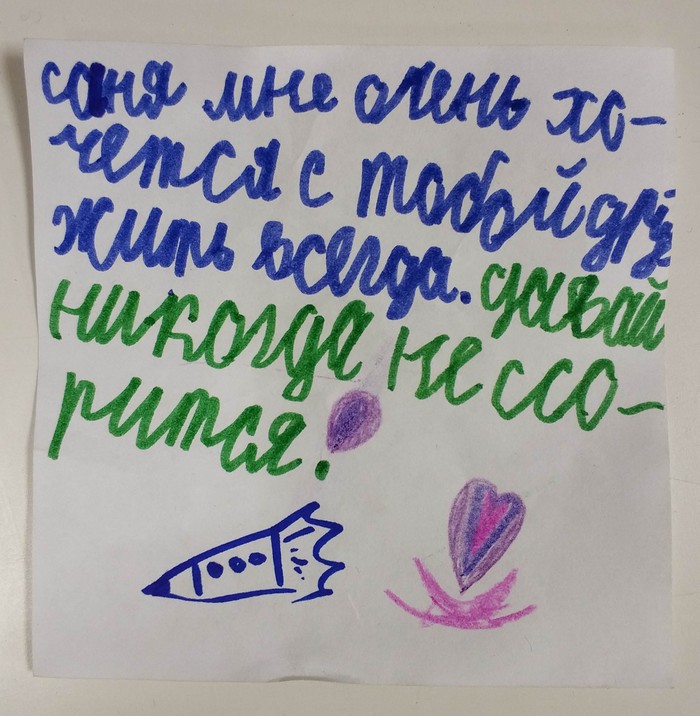 соня мне очень хо-
чется с тобой дру
жить всегда. давай
никогда не ссо-
рится.